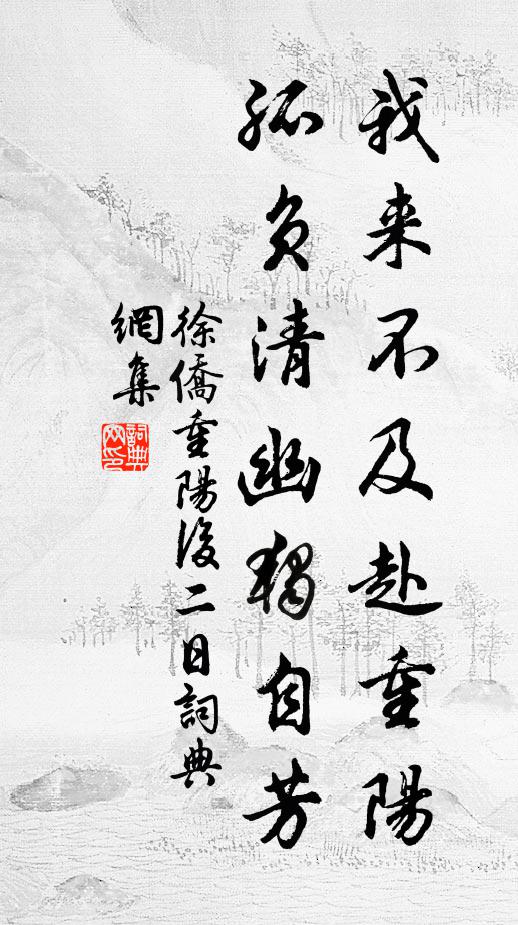 我来不及赴重陽
孤負清幽独自芳
徐僑重陽後二日詞典
網集
詞典
网印